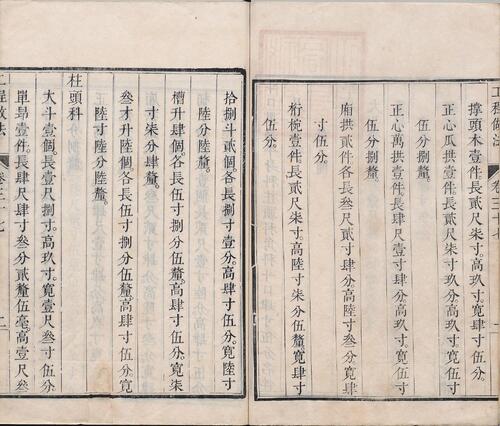 工程做法 卷三十七
撑頭木壹件長貳尺柒寸。高玖寸。寬肆寸
伍分捌釐。
正心瓜拱壹件長貳尺柒寸玖分。高玖寸。寬伍寸
伍分捌釐。
正心萬拱壹件長肆尺壹寸肆分。高玖寸。寬伍寸
伍分捌釐。
廂拱貳件各長叁尺貳寸肆分。高陸寸叁分。寬肆
寸伍分。
桁椀壹件長貳尺柒寸。高陸寸柒分伍釐。寬肆寸
伍分。
拾捌斗貳個各長捌寸壹分。高肆寸伍分。寬陸寸
陸分陸釐。
槽升肆個。各長伍寸捌分伍釐。高肆寸伍分。寬柒
寸柒分肆釐。
叁才升陸個各長伍寸捌分伍釐高肆寸伍分寬
陸寸陸分陸釐。
柱頭科
大斗壹個長壹尺捌寸。高玖寸。寬壹尺叁寸伍分。
單昂壹件。長肆尺肆寸叁分貳釐伍毫。高壹尺叁
工程做法 卷三十七 二